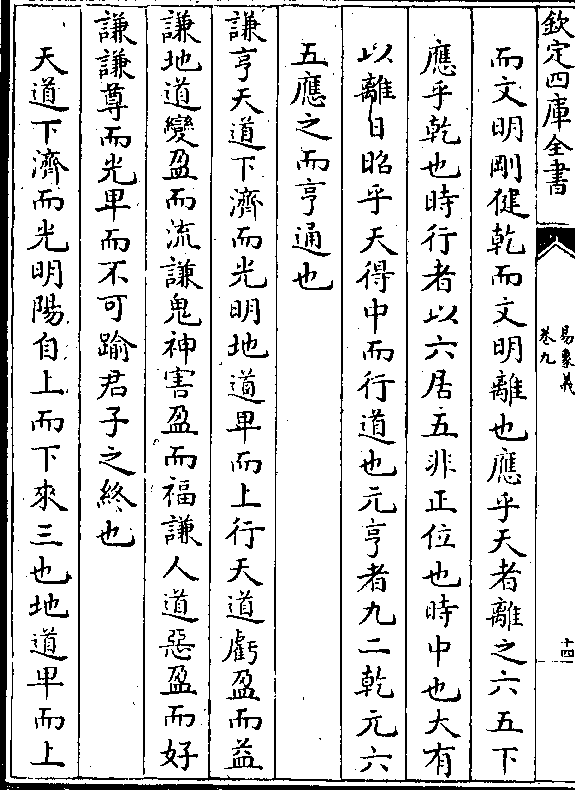 欽定四庫全書
易象義
卷九
十四
而文明剛健乾而文明離也應乎天者離之六五下
應乎乾也時行者以六居五非正位也時中也大有
以離日昭乎天得中而行道也元亨者九二乾元六
五應之而亨通也
謙亨天道下濟而光明地道卑而上行天道虧盈而益
謙地道變盈而流謙鬼神害盈而福謙人道惡盈而好
謙謙尊而光卑而不可踰君子之終也
天道下濟而光明陽自上而下來三也地道卑而上